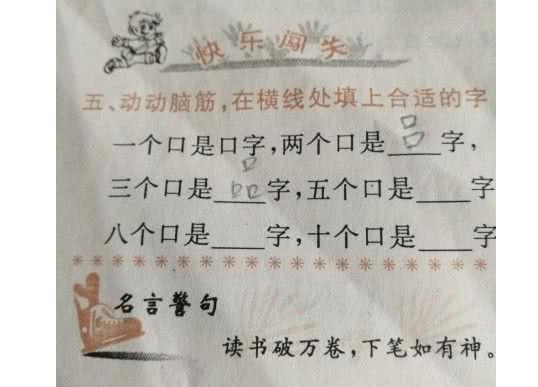 快乐闯关
五、动动脑筋,在横线处填上合适的字
一个口是口字,两个口是吕字,
三个口是品字,五个口是____字
八个口是____字,十个口是____字
名言警句
读书破万卷,下笔如有神。